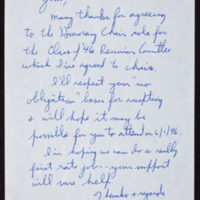 Many thanks for agreeing
to the Honorary Chair role for
the Class of '46 Reunion Comttee
which I've agreed to chair.
I'll respect your "no
obligation" basis for accepting
& will hope it may be
possible for you to attend on 6/1/96.
I'm hoping we can do a really
first rate job -- your support
will sure help!
Thanks & regards